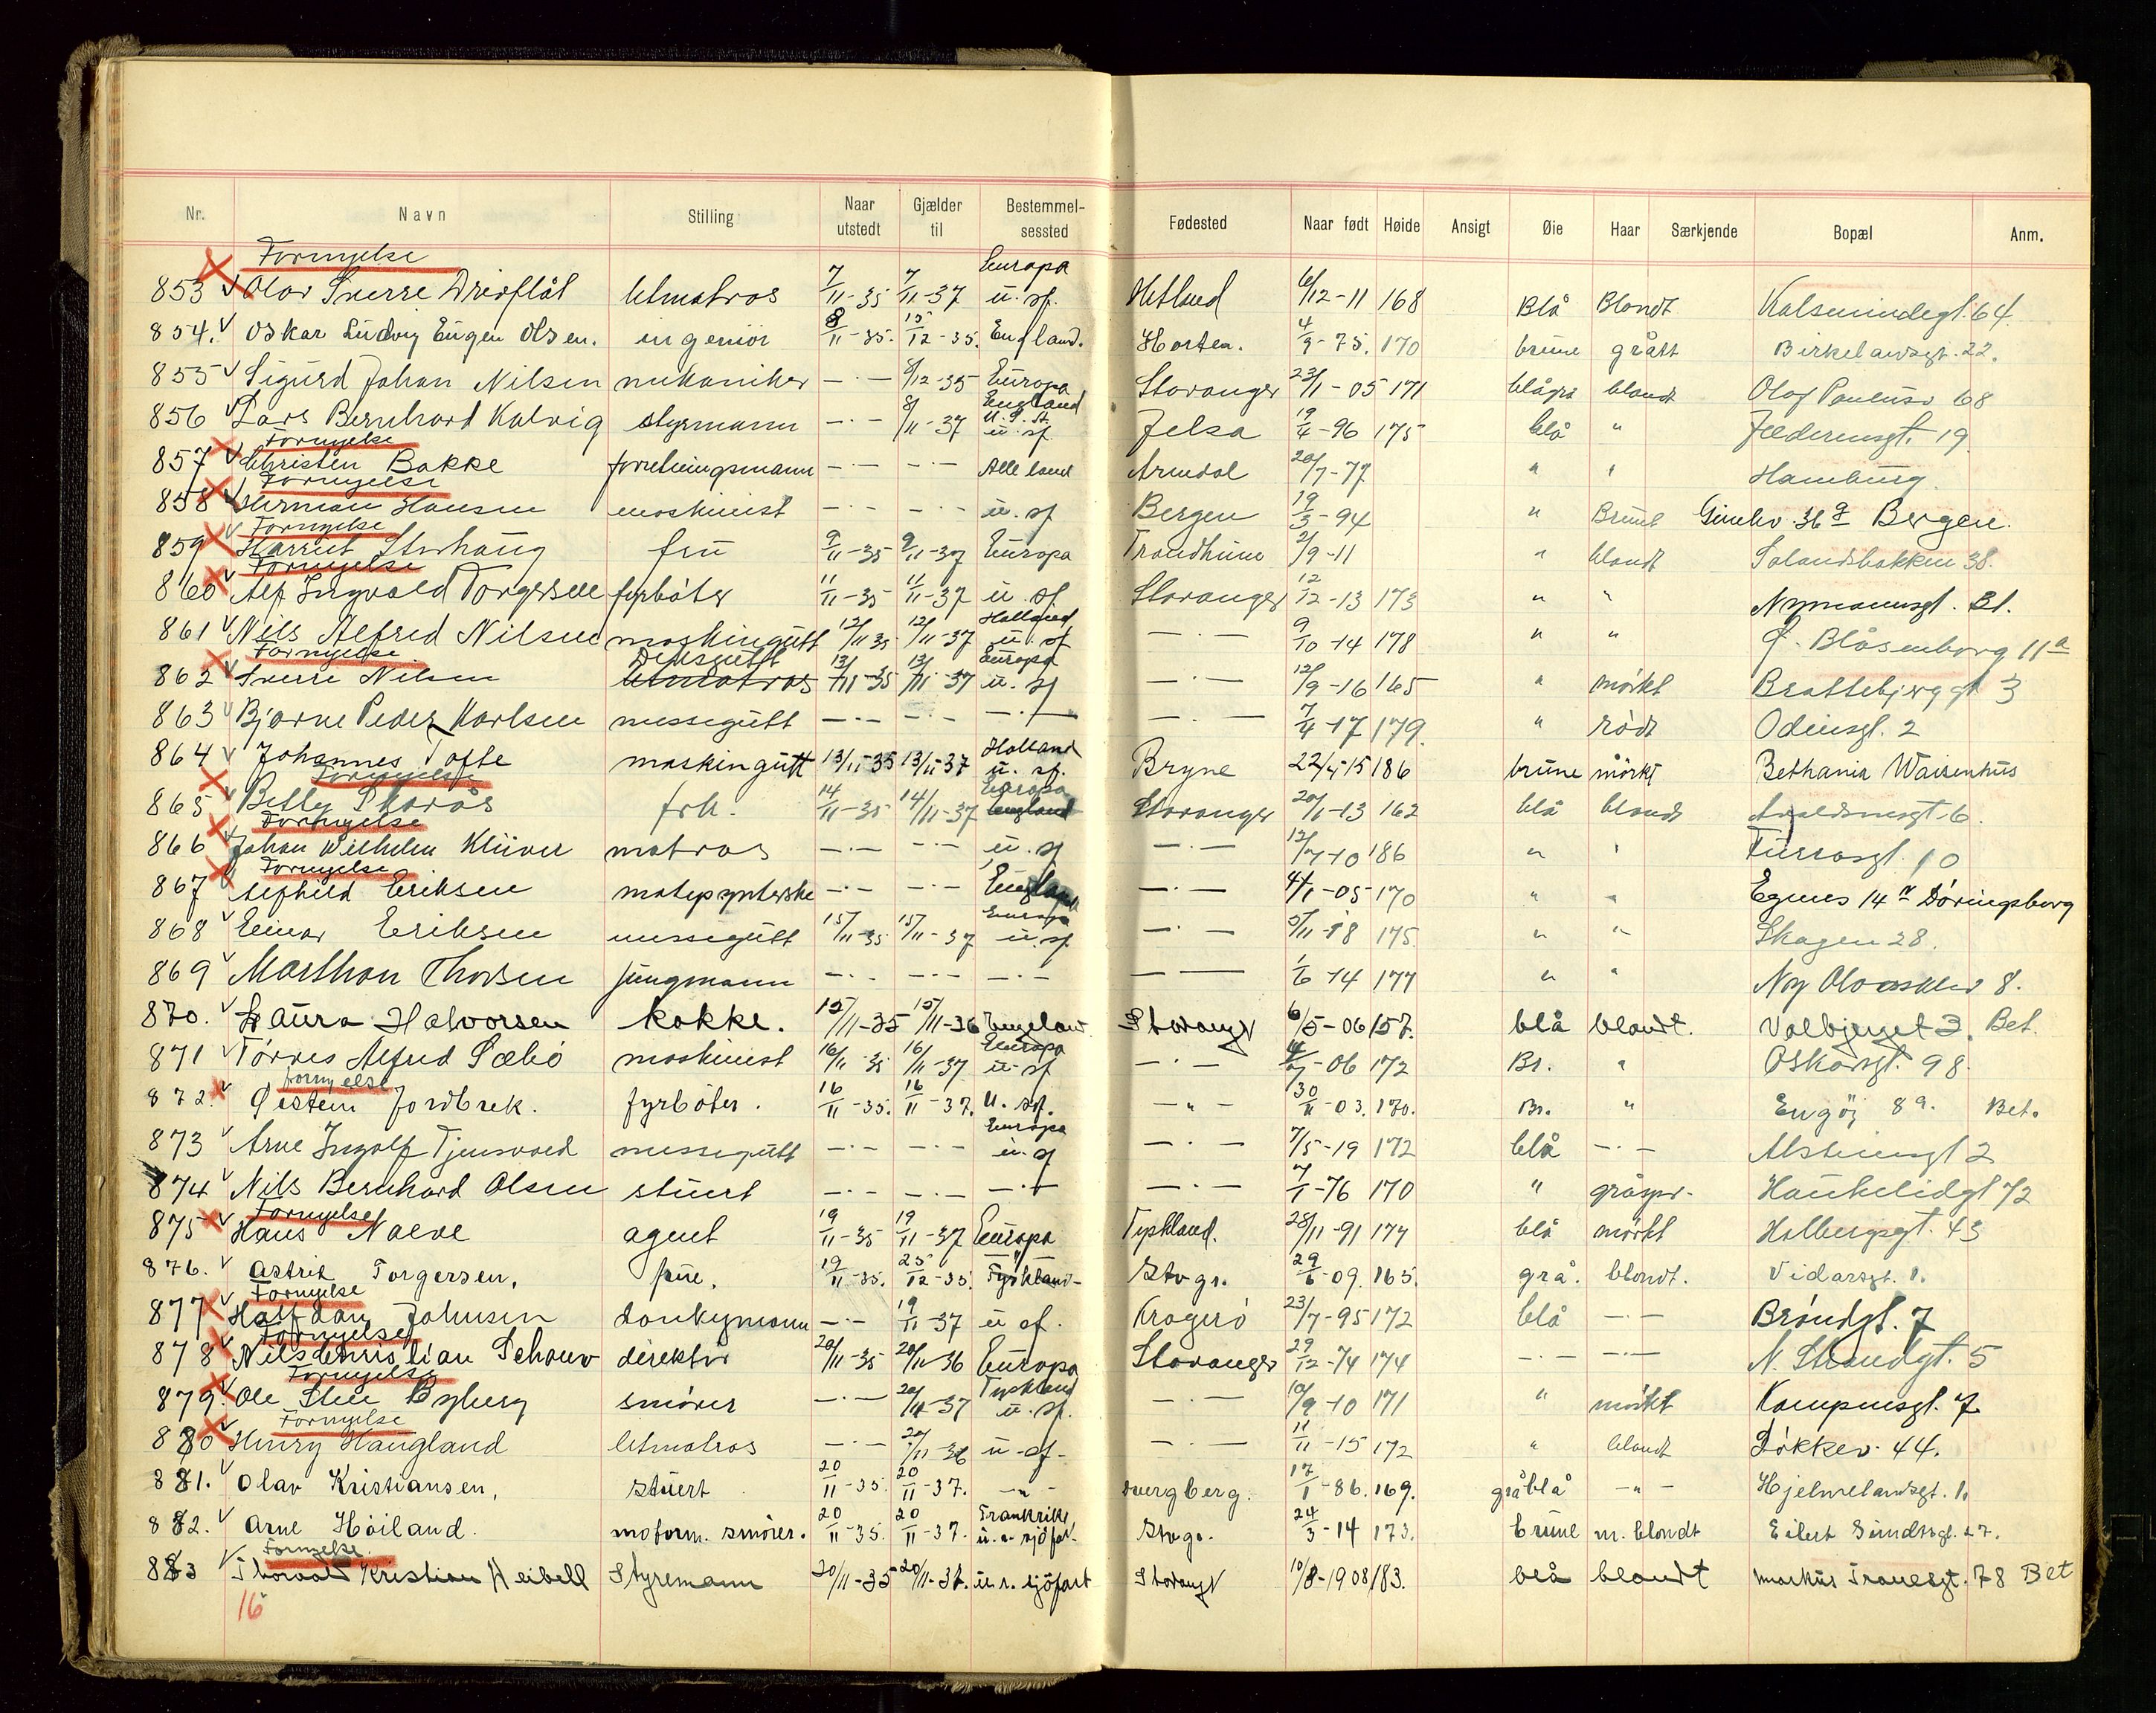 Nr. Navn Stilling Naar utstedt Gjælder til Bestemmelsessted Fødested Naar født Høide Ansigt Øie Haar Særkjende Bopæl Anm.
Fornyelse Europa
853 Olav Sverre letmatros 7/11-35 7/11-37 u. sf. Hetland 6/12-11 168 Blå Blondt 64
854. Oskar Ludvig Eugen Olsen. ingeniør 8/11-35. 15/12-35. England. Horten. 4/9-75. 170 brune grått Birkelandsgt. 22.
855 Sigurd Johan Nilsen mekaniker —·— 8/12-35 Europa Stavanger 23/11-05 171 blågrå blondt Olaf Paulusv 68
England
856 Lars Bernhard Kalvig styrmann —·— 8/11-37 U.S.A. u. sf. Jelsa 19/4-96 175 blå " 19
Fornyelse
857 Christen Bakke forretningsmann —·— —·— Alle land Arendal 20/7-77 " " Hamburg.
Fornyelse
858 Herman Hansen maskinist —·— —·— u. sf Bergen 19/3-94 " Brunt 36 Bergen.
Fornyelse
859 Harriet frü 9/11-35 9/11-37 Europa 2/9-11 " blondt 38.
Fornyelse
860 Alf Ingvald Torgersen fyrbøter 11/11-35 11/11-37 u. sf Stavanger 12/12-13 173 " " Nymannsgt.
Holland
861 Nils Alfred Nilsen maskingutt 12/11 35 12/11-37 u. sf —·— 9/10-14 178 " " Blåsenborg 11a
Fornyelse Dekksgutt Europa
862 Sverre Nilsen letmatros 13/11-35 13/11-37 u. sf —·— 12/9-16 165 " mörkt 3
863 Bjarne Peder Karlsen messegutt —·— —·— —·— —·— 7/4-17 179. " rödt Odinsgt. 2
Holland
864 Johannes Tofte maskingutt 13/11-35 13/11-37 u. sf. Bryne 22/4-15 186 brune mörkt Bethania Waisenhus
Fornyelse Europa
865 Betty Skarås frk. 14/11-35 14/11-37 England Stavanger 20/1-13 162 blå blondt 6.
Fornyelse
866 Johan Wilhelm Klüver matros —·— —·— u. sf —·— 12/7-10 186 " " 10
Fornyelse
867 Alfhild Eriksen —·— —·— England —·— 4/1-05 170 " " Egnes 14
Europa
868 Einar Eriksen messegutt 15/11-35 15/11-37 u. sf. —·— 5/11-18 175. " " Skagen 28.
869 Marthon Thorsen jungmann —·— —·— —·— —— 1/6-14 177 " " Ny 8.
870. Laura Halvorsen kokke. 15/11-35 15/11-36 England Stavanger 6/5-06 157. blå blondt. 3. Bet.
Europa
871 Torres Alfred Sæbø maskinist 16/11-35 16/11-37 u. sf —·— -06 172 Br. " Oskarsgt. 98.
fornyelse
872. Øistein Jordbrek. fyrbøter. 16/11-35. 16/11-37. u. sf. —"— 30/11-03. 170. Br. " Engöy 89. Bet.
Europa
873 Arne Ingolf Tjensvold messegutt —·— —·— u. sf —·— 7/5-19 172 blå —·— 2
874 Nils Bernhard Olsen stuert —·— —·— —·— —·— 7/1-76 170 " Haukelidgt 72
Fornyelse
875 Hans Naeve agent 19/11-35 19/11-37 Europa Tyskland. 28/11-91 177 blå mörkt Holbergsgt. 43
876. Astrid Torgersen, frue. 19/11-35. 25/12-35. Tyskland- Stvgr. 29/6-09. 165. grå. blondt. Vidarsgt. 1.
Fornyelse
877 Halfdan Johnsen donkeymann —·— 19/11-37 u sf. Kragerö 23/7-95 172 blå —·— Bröndgt. 7
Fornyelse
878 Nils Christian Schanv direktör 20/11-35 20/11-36 Europa Stavanger 29/12-74 174 —·— —·— N. Strandgt. 5
Fornyelse Tyskland
879. Ole Byberg smörer —·— 20/11-37 u. sf. —·— 10/9-10 171 " mörkt 7.
Fornyelse
880 Henry Haugland letmatros —·— 20/11-36 u-sf- —·— 11/11-15 172 " blondt Løkkev. 44.
881. Olav Kristiansen, stuert 20/11-35. 20/11-37. —"— 17/1-86. 169. gråblå —"— Hjelmelandsgt. 1.
882. Arne Höiland. motorm. smörer. 20/11-35. 20/11-37. Frankrike u. r. sjöfart. Stvgr. 24/3-14 173. brune m. blondt Eilert Sundtsgt. 27.
Fornyelse.
883 Thorvald Kristian Heibell Styremann 20/11-35 20/11-37. u. r. sjöfart Stavanger 10/8-1908 183. blå blondt Markus Tranesgt. 78 Bet
16